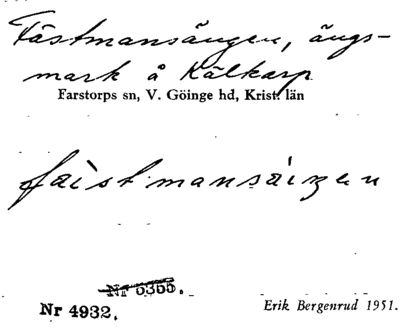 Fästmansängen, ängs-
mark å Kälkarp
Farstorps sn, V. Göinge hd, Krist. län
fäistmansäiŋen
Nr 5355.
Nr 4932.
Erik Bergenrud 1951.